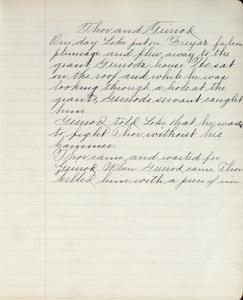 Thor and Geirrod
One day Loke put on Freyas falcon
plumage and flew away to the
giant Geirrods house. He sat
on the roof and while he was
looking through a hole at the
giants, Geirrods servant caught
him
Geirrod told Loke that he wants
to fight Thor without his
hammer.
Thor came and waited for
Geirrod. When Geirrod came Thor
killed him with a piece of iron